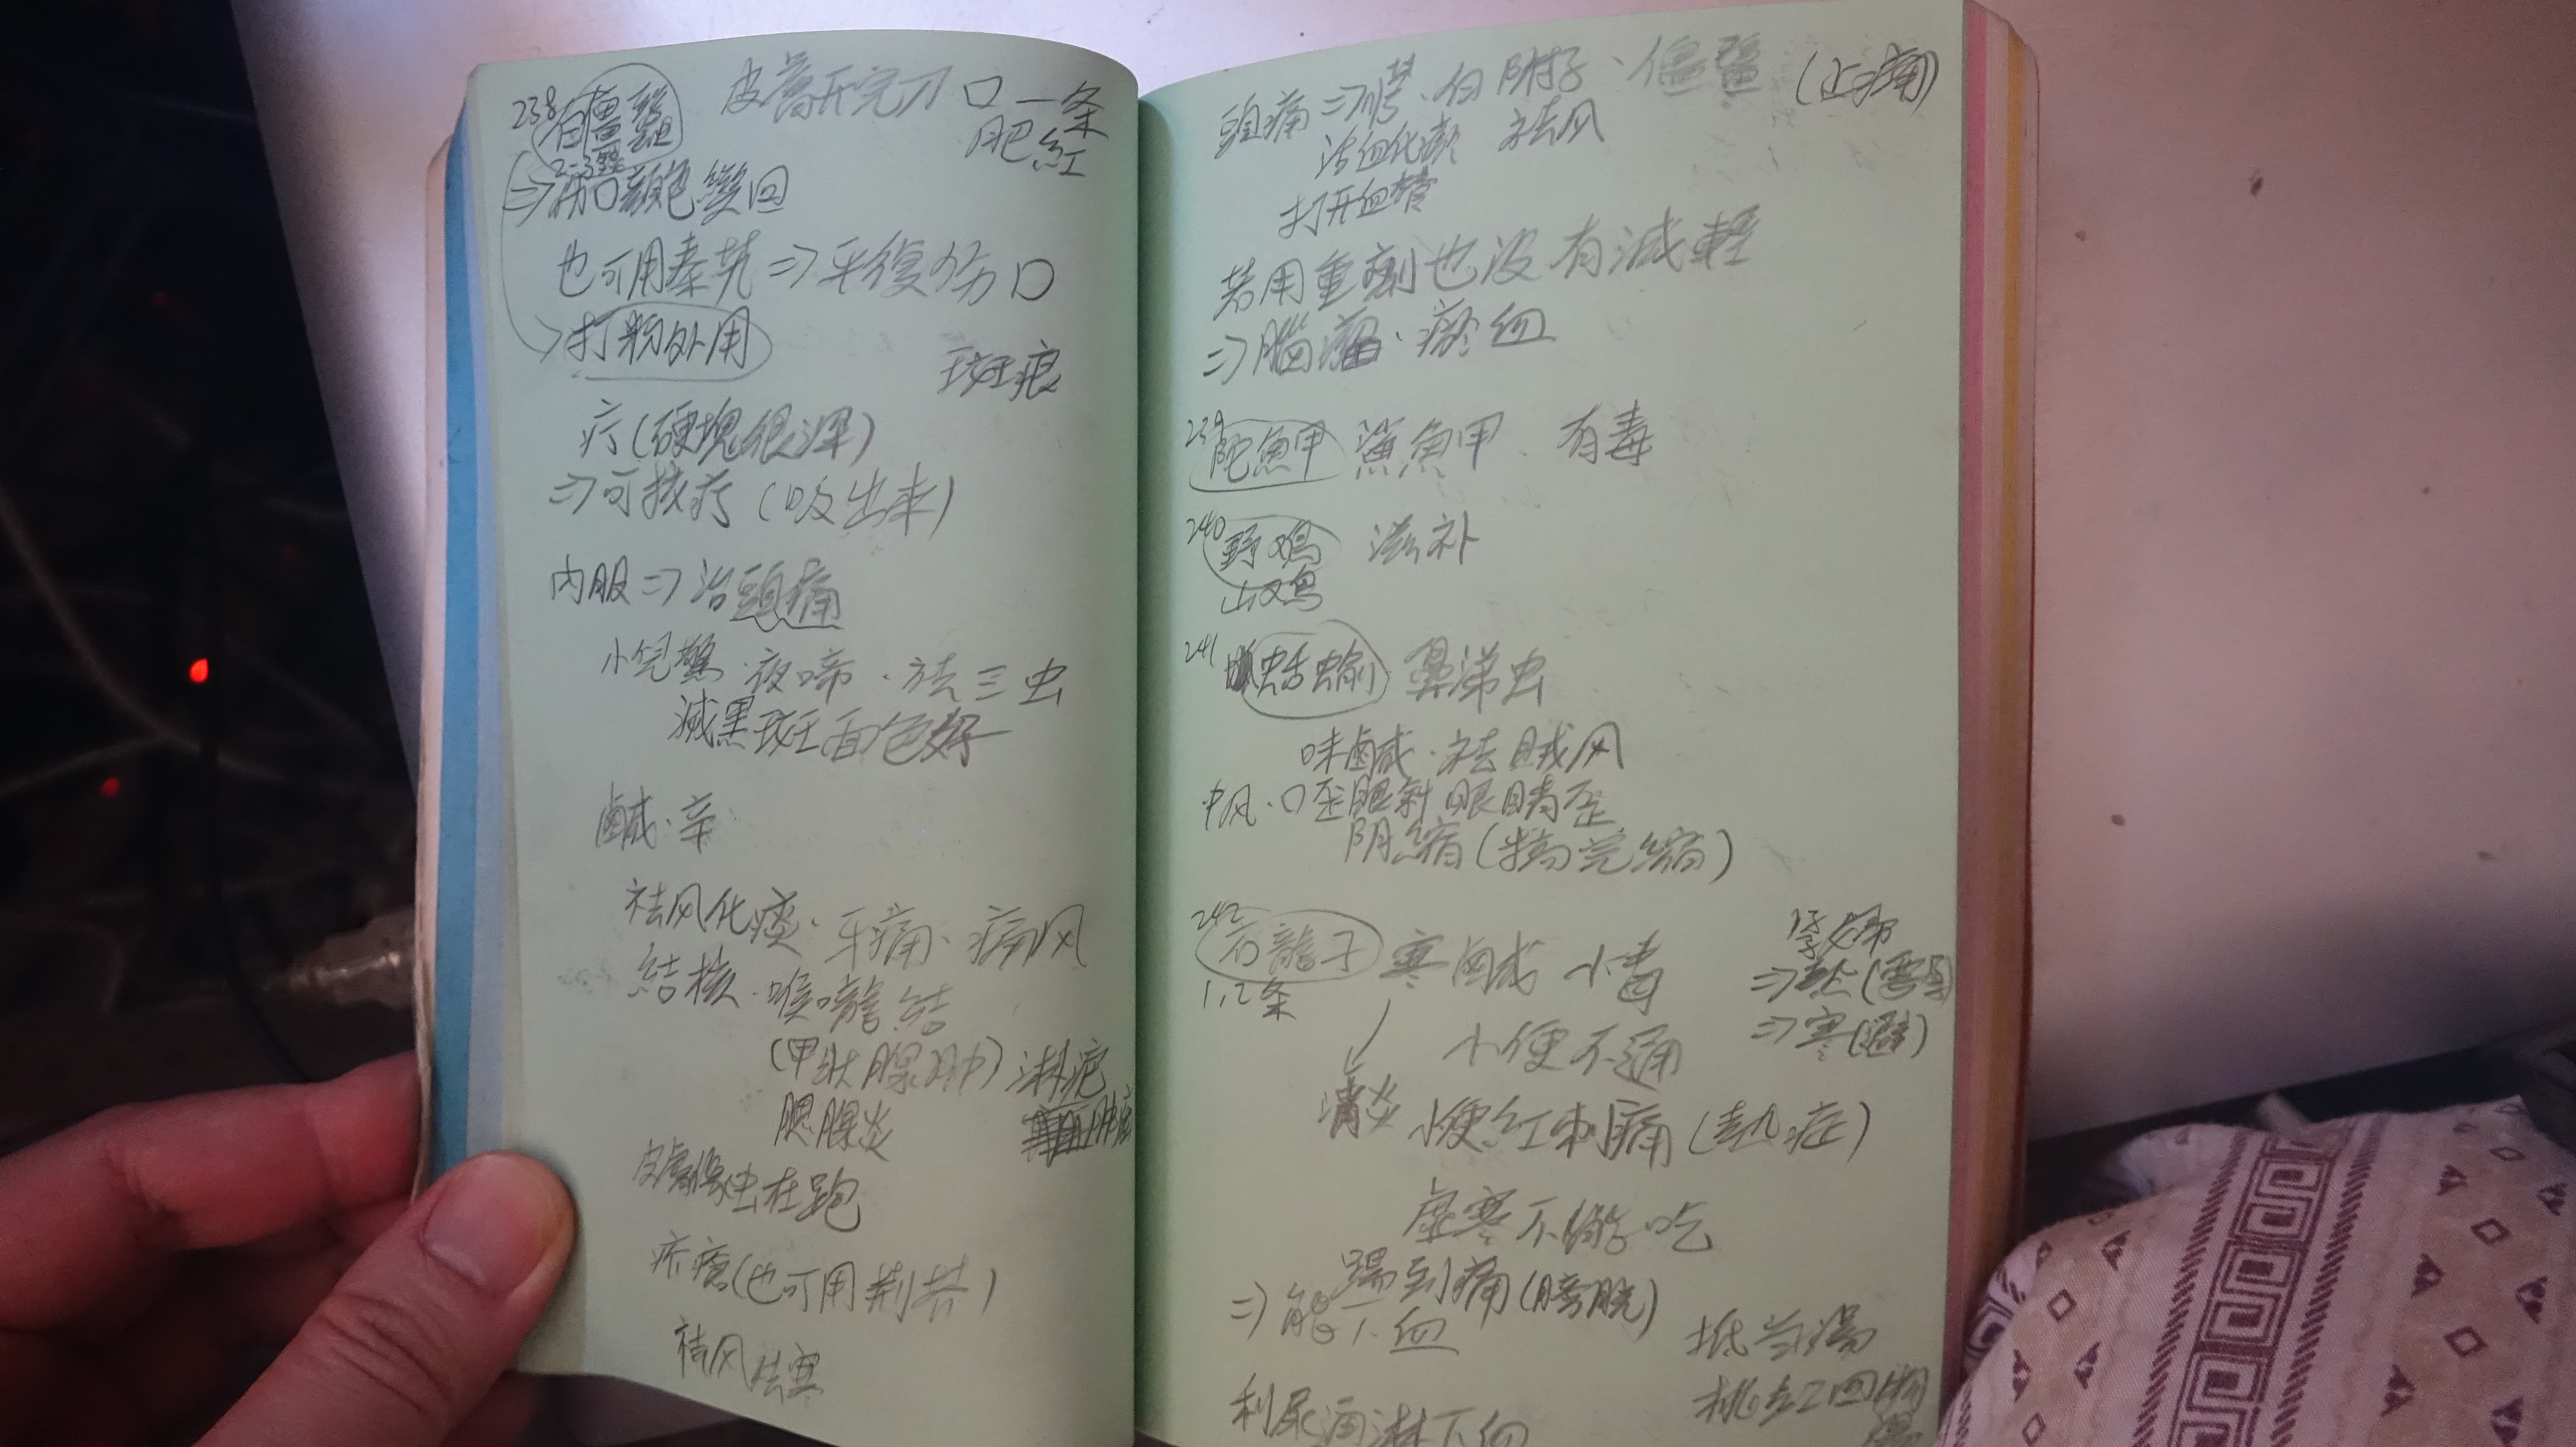 238 白殭蠶 皮膚开完刀口一条
肥紅
2-3錢
⇒傷口顏色變回
也可用秦艽⇒平復伤口
→打粉外用
斑痕
疔(硬塊很深)
⇒可拔疔(吸出来)
內服⇒治頭痛
小兒驚.夜啼.去三虫
減黑斑面色好
鹹.辛
祛风化痰.牙痛.痛风
結核.喉嚨結
(甲狀腺肿)淋疤
腮腺炎 肿瘤
皮膚像虫在跑
疥瘡(也可用荆芥)
祛风去寒
頭痛⇒川芎.白附子.僵蠶(止痛)
活血化瘀 祛风
打开血管
若用重劑也没有減輕
⇒腦瘤.瘀血
239 鮀魚甲 鯊魚甲.有毒
240 野鸡 滋补
山鸡
241 蛞蝓 鼻涕虫
味鹹.祛賊风
中风.口歪眼斜眼睛歪
阴縮(睪完縮)
242 石龍子 寒鹹 小毒
1,2条
小便不通
⇒寒(避)
消炎 小便紅刺痛(热症)
虛寒不能吃
踢到痛(膀胱)
⇒能下血
抵当湯
利尿通淋下血
桃紅四物
湯